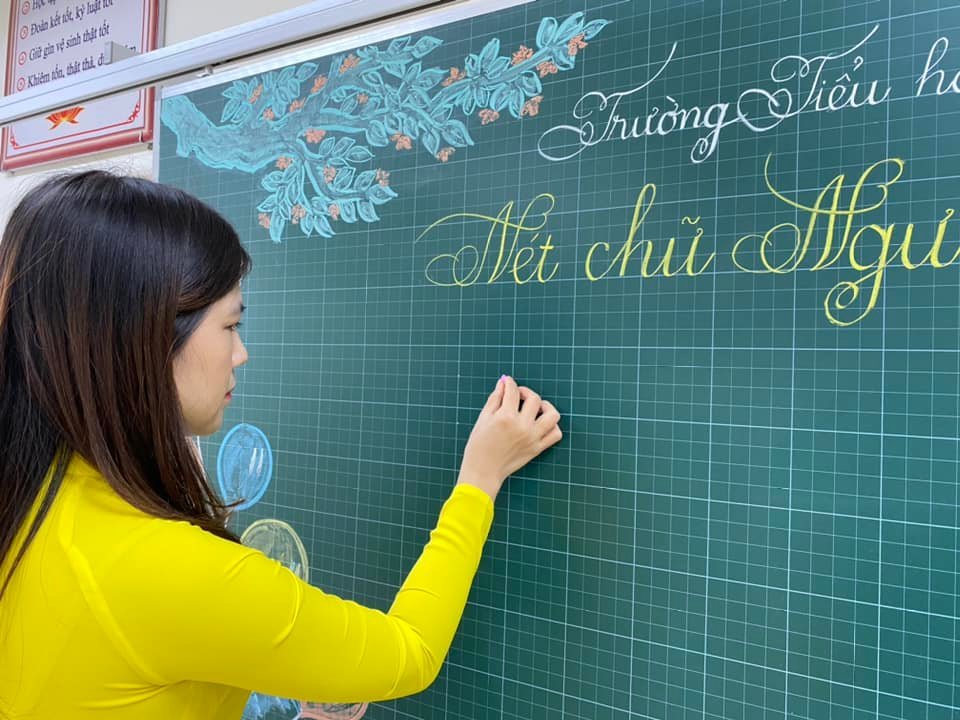 Đoàn kết tốt, kỷ luật tốt
Giữ gìn vệ sinh thật tốt
Khiêm tốn, thật thà,
Trường Tiểu
Nét chữ Ngư